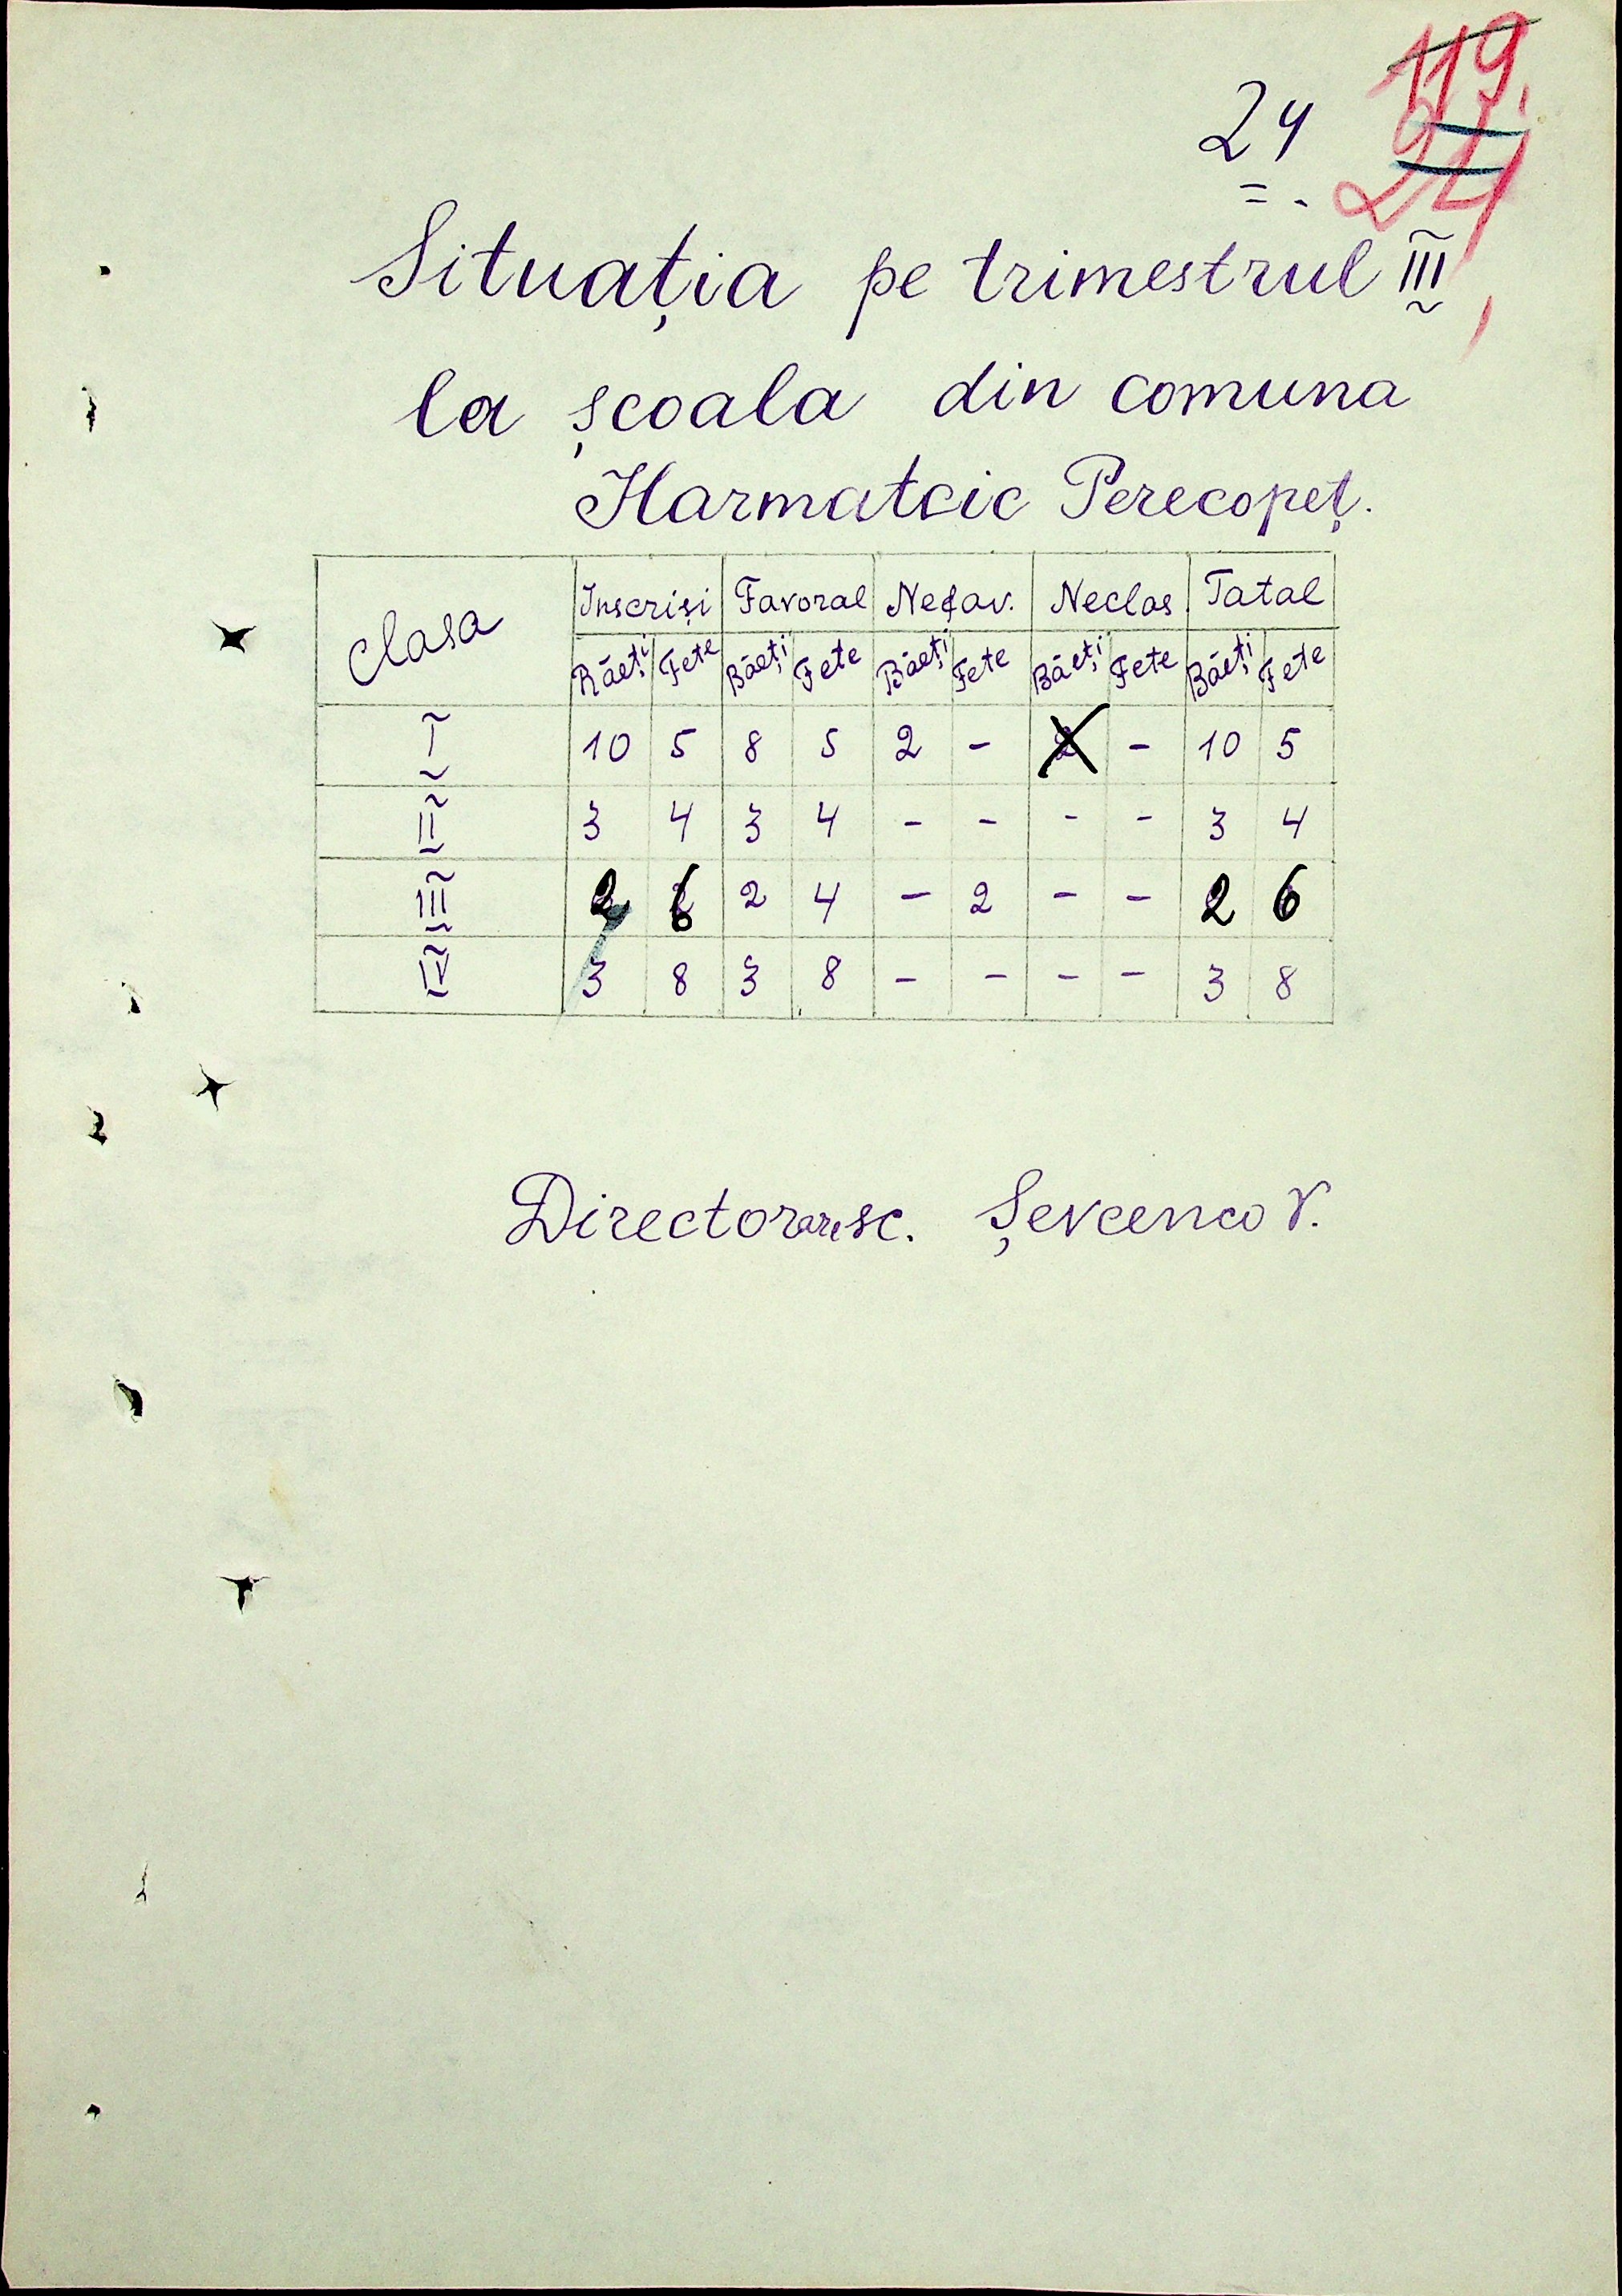 119.
24
24
Situația pe trimestrul III
la școala din comuna
Harmatcic Perecopeț.
Clasa Inscriși Favoral Nefav. Neclas. Tatal
Băeți Fete Băeți Fete Băeți Fete Băeți Fete Băeți Fete
I 10 5 8 5 2 - - 10 5
II 3 4 3 4 - - - - 3 4
III 2 6 2 4 - 2 - - 2 6
IV 3 8 3 8 - - - - 3 8
Directorar sc. Șevcenco V.